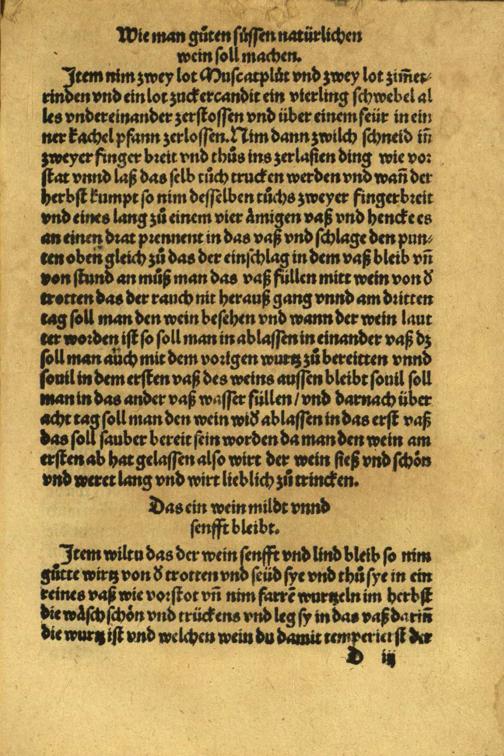 Wie man gůten süssen natürlichen
wein soll machen.
Item nim zwey lot Muscatplůt vnd zwey lot zim̃et-
rinden vnd ein lot zuckercandit ein vierling schwebel al
les vndereinander zerstossen vnd über einem feür in ein
ner kachel pfann zerlossen. Nim dann zwilch schneid in̄
zweyer finger breit vnd thůs ins zerlaßen ding wie vor
stat vnnd laß das selb tůch trucken werden vnd wan̄ der
herbst kumpt so nim desselben tůchs zweyer fingerbreit
vnd eines lang zů einem vier åmigen vaß vnd hencke es
an einen drat prennent in das vaß vnd schlage den pun-
ten oben gleich zů das der einschlag in dem vaß bleib vn̄
von stund an můß man das vaß füllen mitt wein von d̕
trotten das der rauch nit herauß gang vnnd am dritten
tag soll man den wein besehen vnd wann der wein laut
ter worden ist so soll man in ablassen in einander vaß dz
soll man aůch mit dem vorigen wurtz zů bereitten vnnd
souil in dem ersten vaß des weins aussen bleibt souil soll
man in das ander vaß wasser füllen / vnd darnach über
acht tag soll man den wein wid̕ ablassen in das erst vaß
das soll sauber bereit sein worden da man den wein am
ersten ab hat gelassen also wirt der wein sieß vnd schön
vnd weret lang vnd wirt lieblich zů trincken.
Das ein wein mildt vnnd
senfft bleibt.
Item wiltu das der wein senfft vnd lind bleib so nim
gůtte wirtz von d̕ trotten vnd seüd sye vnd thů sye in ein
reines vaß wie vorstot vn̄ nim farrē wurtzeln im herbst
die wåsch schön vnd trückens vnd leg sy in das vaß darin̄
die wurtz ist vnd welchen wein du damit temperierst der
D iij